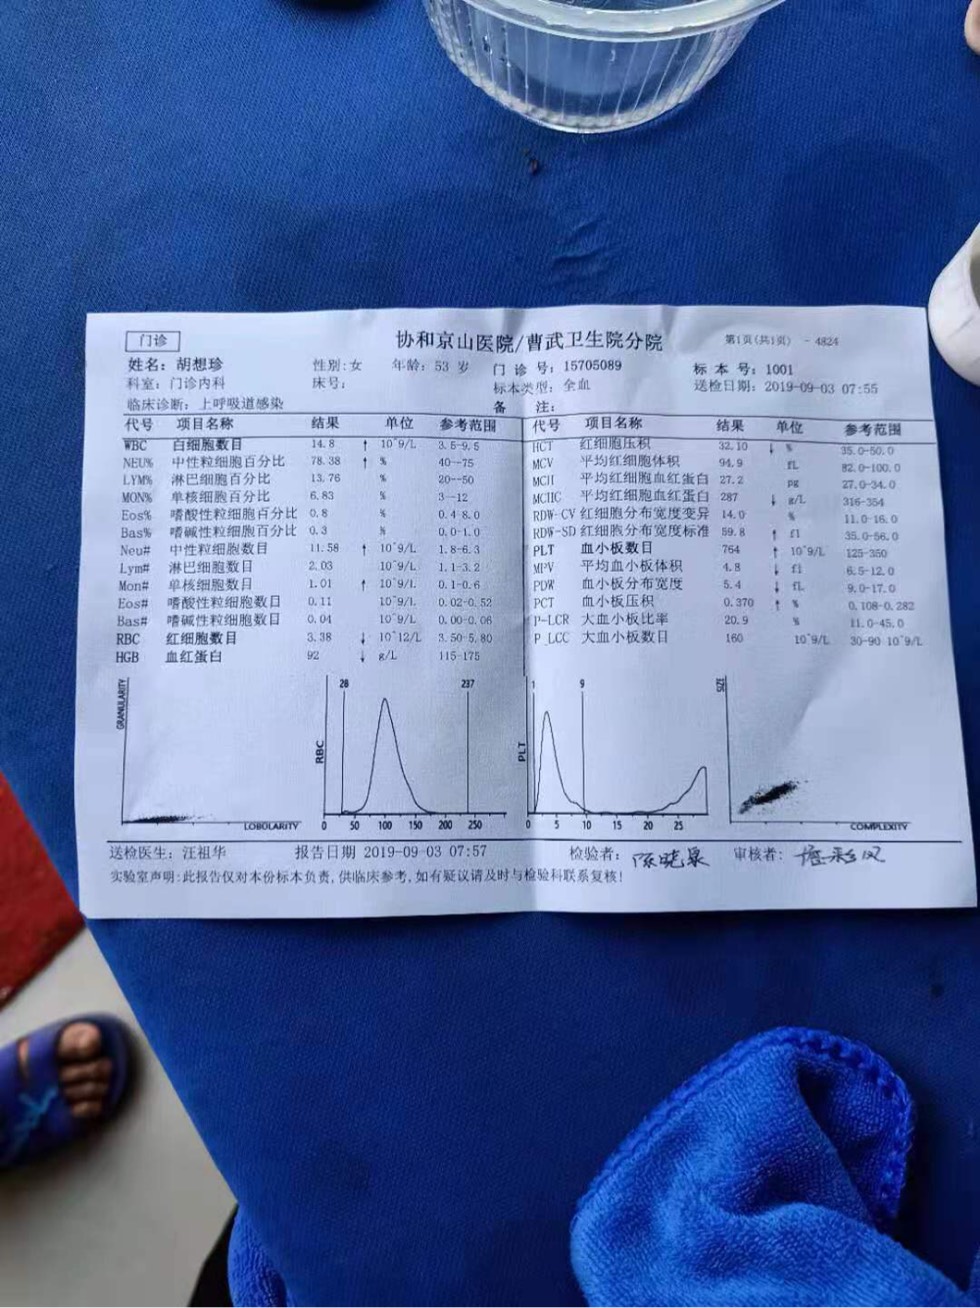 门诊
协和京山医院/曹武卫生院分院
第1页(共1页) - 4824
姓名: 胡想珍 性别:女 年龄: 53 岁 门诊号: 15705089 标本号: 1001
科室: 门诊内科 床号: 标本类型: 全血 送检日期: 2019-09-03 07:55
临床诊断: 上呼吸道感染 备注:
代号 项目名称 结果 单位 参考范围 代号 项目名称 结果 单位 参考范围
WBC 白细胞数目 14.8 ↑ 10^9/L 3.5-9.5 HCT 红细胞压积 32.10 ↓ % 35.0-50.0
NEU% 中性粒细胞百分比 78.38 ↑ % 40--75 MCV 平均红细胞体积 94.9 fL 82.0-100.0
LYM% 淋巴细胞百分比 13.76 % 20--50 MCH 平均红细胞血红蛋白 27.2 pg 27.0-34.0
MON% 单核细胞百分比 6.83 % 3--12 MCHC 平均红细胞血红蛋白 287 ↓ g/L 316-354
Eos% 嗜酸性粒细胞百分比 0.8 % 0.4-8.0 RDW-CV 红细胞分布宽度变异 14.0 % 11.0-16.0
Bas% 嗜碱性粒细胞百分比 0.3 % 0.0-1.0 RDW-SD 红细胞分布宽度标准 59.8 ↑ fl 35.0-56.0
Neu# 中性粒细胞数目 11.58 ↑ 10^9/L 1.8-6.3 PLT 血小板数目 764 ↑ 10^9/L 125-350
Lym# 淋巴细胞数目 2.03 10^9/L 1.1-3.2 MPV 平均血小板体积 4.8 ↓ fl 6.5-12.0
Mon# 单核细胞数目 1.01 ↑ 10^9/L 0.1-0.6 PDW 血小板分布宽度 5.4 ↓ fL 9.0-17.0
Eos# 嗜酸性粒细胞数目 0.11 10^9/L 0.02-0.52 PCT 血小板压积 0.370 ↑ % 0.108-0.282
Bas# 嗜碱性粒细胞数目 0.04 10^9/L 0.00-0.06 P-LCR 大血小板比率 20.9 % 11.0-45.0
RBC 红细胞数目 3.38 ↓ 10^12/L 3.50-5.80 P_LCC 大血小板数目 160 10^9/L 30-90 10^9/L
HGB 血红蛋白 92 ↓ g/L 115-175
GRANULARITY
LOBULARITY
28 237
RBC
0 50 100 150 200 250
1 9
PLT
0 5 10 15 20 25
SIZE
COMPLEXITY
送检医生: 汪祖华 报告日期 2019-09-03 07:57 检验者: 审核者:
实验室声明:此报告仅对本份标本负责,供临床参考,如有疑议请及时与检验科联系复核!